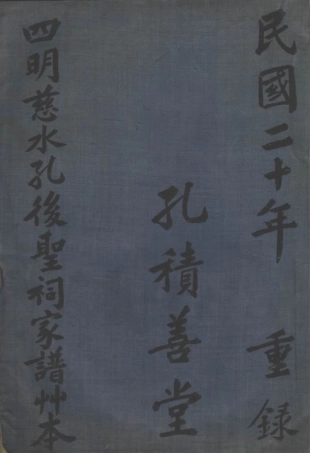 民國二十年 重錄
孔積善堂
四明慈水孔後聖祠家譜艸本